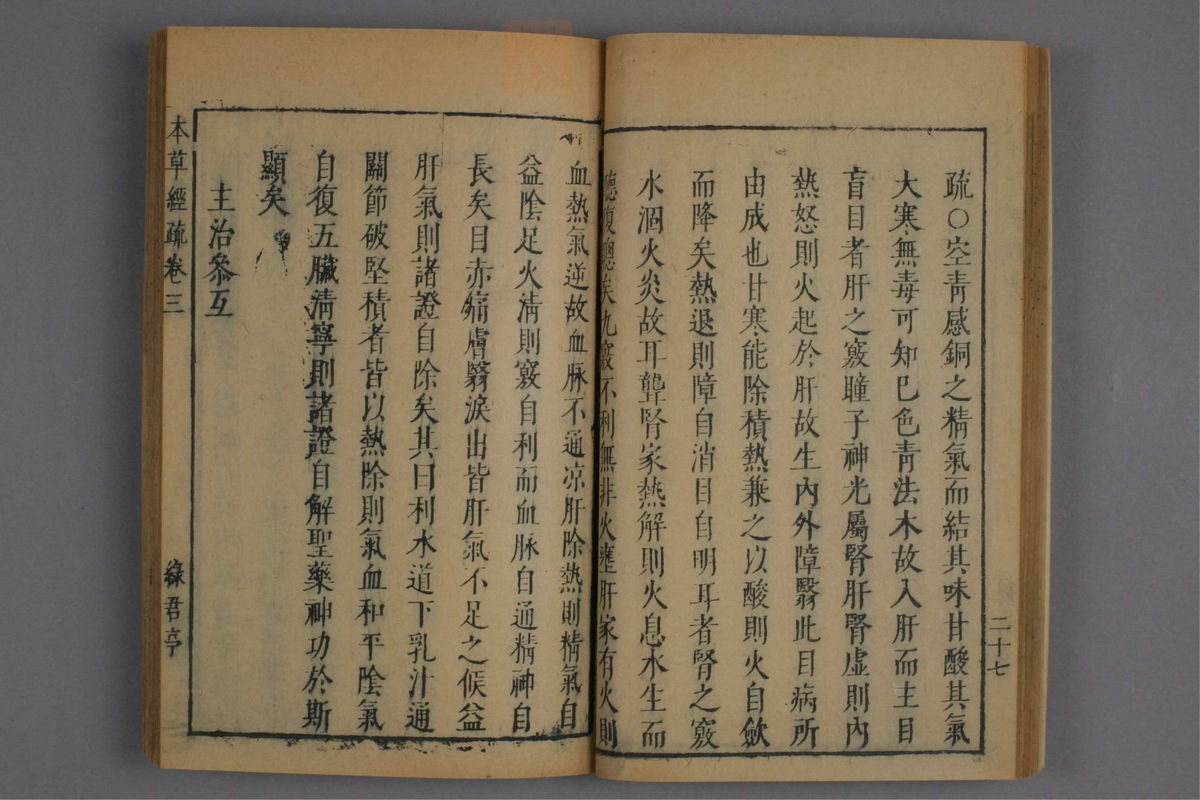 二十七
疏○空青感銅之精氣而結其味甘酸其氣
大寒無毒可知巳色青法木故入肝而主目
盲目者肝之竅瞳子神光屬腎肝腎虛則內
熱怒則火起於肝故生內外障翳此目病所
由成也甘寒能除積熱兼之以酸則火自歛
而降矣熱退則障自消目自明耳者腎之竅
水涸火炎故耳聾腎家熱解則火息水生而
聰復聰矣九竅不利無非火壅肝家有火則
血熱氣逆故血脉不通凉肝除熱則精氣自
益陰足火淸則竅自利而血脉自通精神自
長矣目赤痛膚翳淚出皆肝氣不足之候益
肝氣則諸證自除矣其曰利水道下乳汁通
關節破堅積者皆以熱除則氣血和平陰氣
自復五臟淸寧則諸證自解聖藥神功於斯
顯矣
主治參互
本草經疏卷三
綠君亭